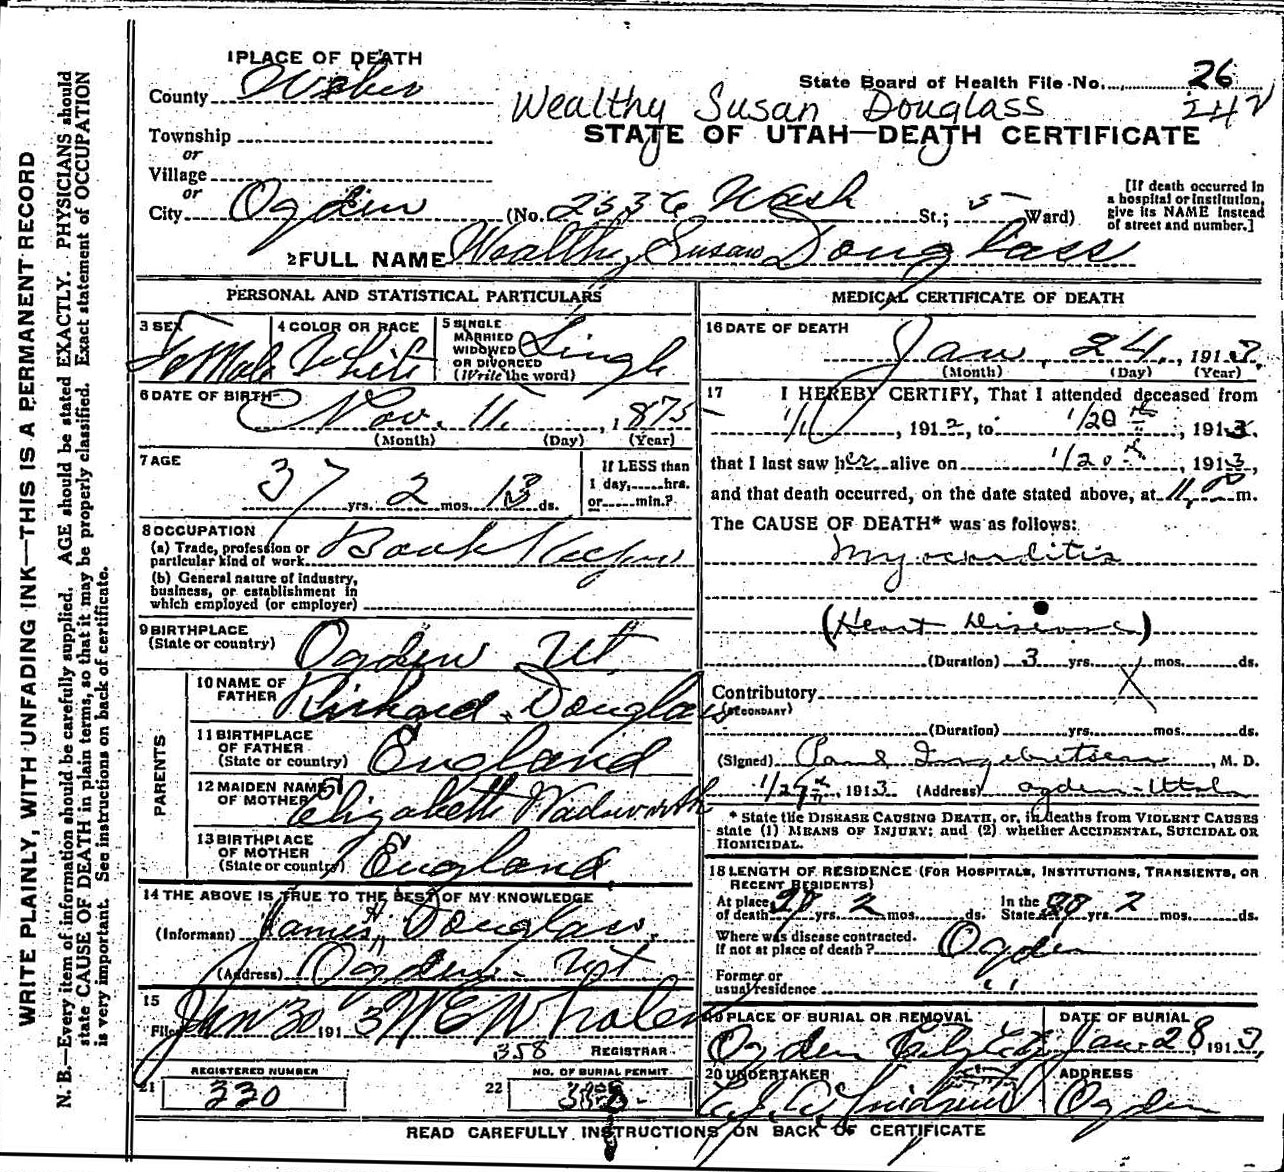 WRITE PLAINLY, WITH UNFADING INK—THIS IS A PERMANENT RECORD
N. B.—Every item of information should be carefully supplied. AGE should be stated EXACTLY. PHYSICIANS should
state CAUSE OF DEATH in plain terms, so that it may be properly classified. Exact statement of OCCUPATION
is very important. See instructions on back of certificate.
1 PLACE OF DEATH
County Weber
State Board of Health File No. 26
242
Wealthy Susan Douglass
STATE OF UTAH—DEATH CERTIFICATE
Township
or
Village
or
City Ogden (No. 2336 Wash St.; 5 Ward)
[If death occurred in
a hospital or institution,
give its NAME instead
of street and number.]
2 FULL NAME Wealthy Susan Douglass
PERSONAL AND STATISTICAL PARTICULARS
3 SEX FeMale
4 COLOR OR RACE White
5 SINGLE
MARRIED
WIDOWED
OR DIVORCED
(Write the word)
Single
6 DATE OF BIRTH
Nov. 11, 1875
(Month) (Day) (Year)
7 AGE
37 yrs. 2 mos. 13 ds.
If LESS than
1 day, hrs.
or min.?
8 OCCUPATION
(a) Trade, profession or
particular kind of work Book Keeper
(b) General nature of industry,
business, or establishment in
which employed (or employer)
9 BIRTHPLACE
(State or country) Ogden Ut
PARENTS
10 NAME OF
FATHER Richard Douglass
11 BIRTHPLACE
OF FATHER
(State or country) England
12 MAIDEN NAME
OF MOTHER Elizabeth Wadsworth
13 BIRTHPLACE
OF MOTHER
(State or country) England
14 THE ABOVE IS TRUE TO THE BEST OF MY KNOWLEDGE
(Informant) James H Douglass
(Address) Ogden Ut
15
Filed Jan 30 1913 W E Whalen
358 REGISTRAR
21 REGISTERED NUMBER
330
22 NO. OF BURIAL PERMIT
MEDICAL CERTIFICATE OF DEATH
16 DATE OF DEATH
Jan. 24, 1913
(Month) (Day) (Year)
17 I HEREBY CERTIFY, That I attended deceased from
1/1, 1912, to 1/20th, 1913,
that I last saw her alive on 1/20th, 1913,
and that death occurred, on the date stated above, at 11.00 m.
The CAUSE OF DEATH* was as follows:
Myocarditis
(Heart Disease)
(Duration) 3 yrs. mos. ds.
Contributory
(SECONDARY)
(Duration) yrs. mos. ds.
(Signed) Paul Ingebretsen, M. D.
1913 (Address) Ogden Utah
* State the DISEASE CAUSING DEATH, or, in deaths from VIOLENT CAUSES
state (1) MEANS OF INJURY; and (2) whether ACCIDENTAL, SUICIDAL OR
HOMICIDAL.
18 LENGTH OF RESIDENCE (FOR HOSPITALS, INSTITUTIONS, TRANSIENTS, OR
RECENT RESIDENTS)
At place
of death yrs. 2 mos. ds.
In the
State yrs. 2 mos. ds.
Where was disease contracted.
If not at place of death? Ogden
Former or
usual residence " "
19 PLACE OF BURIAL OR REMOVAL
Ogden City
DATE OF BURIAL
Jan. 28 1913,
20 UNDERTAKER
ADDRESS
Ogden
READ CAREFULLY INSTRUCTIONS ON BACK OF CERTIFICATE